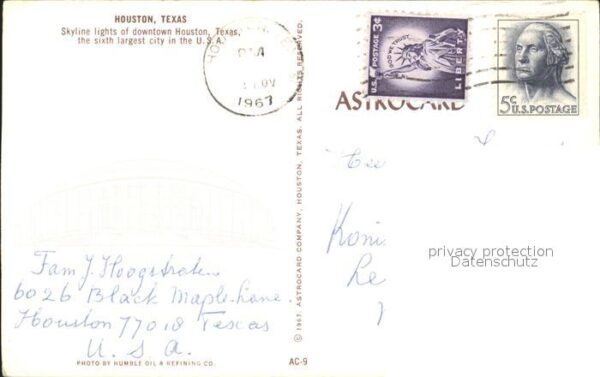 HOUSTON, TEXAS
Skyline lights of downtown Houston, Texas,
the sixth largest city in the U.S.A.
1967
U.S. POSTAGE 3¢
IN GOD WE TRUST
LIBERTY
5¢
U.S. POSTAGE
ASTROCARD
© 1967, ASTROCARD COMPANY, HOUSTON, TEXAS. ALL RIGHTS RESERVED.
Koni
Le
privacy protection
Datenschutz
Fam J. Hoogstraten
6026 Black Maple-Lane.
Houston 77018 Texas
U. S. A.
PHOTO BY HUMBLE OIL & REFINING CO.
AC-9